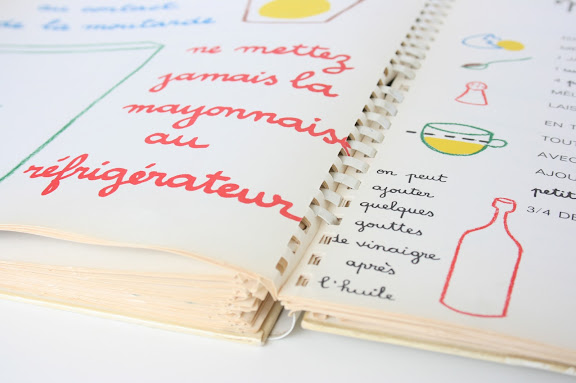 au contact
de la moutarde
ne mettez
jamais la
mayonnaise
au
réfrigérateur
MÉL
LAIS
EN 1
TOUT
AVEC
AJOU
petit
3/4 DE
on peut
ajouter
quelques
gouttes
de vinaigre
après
l'huile